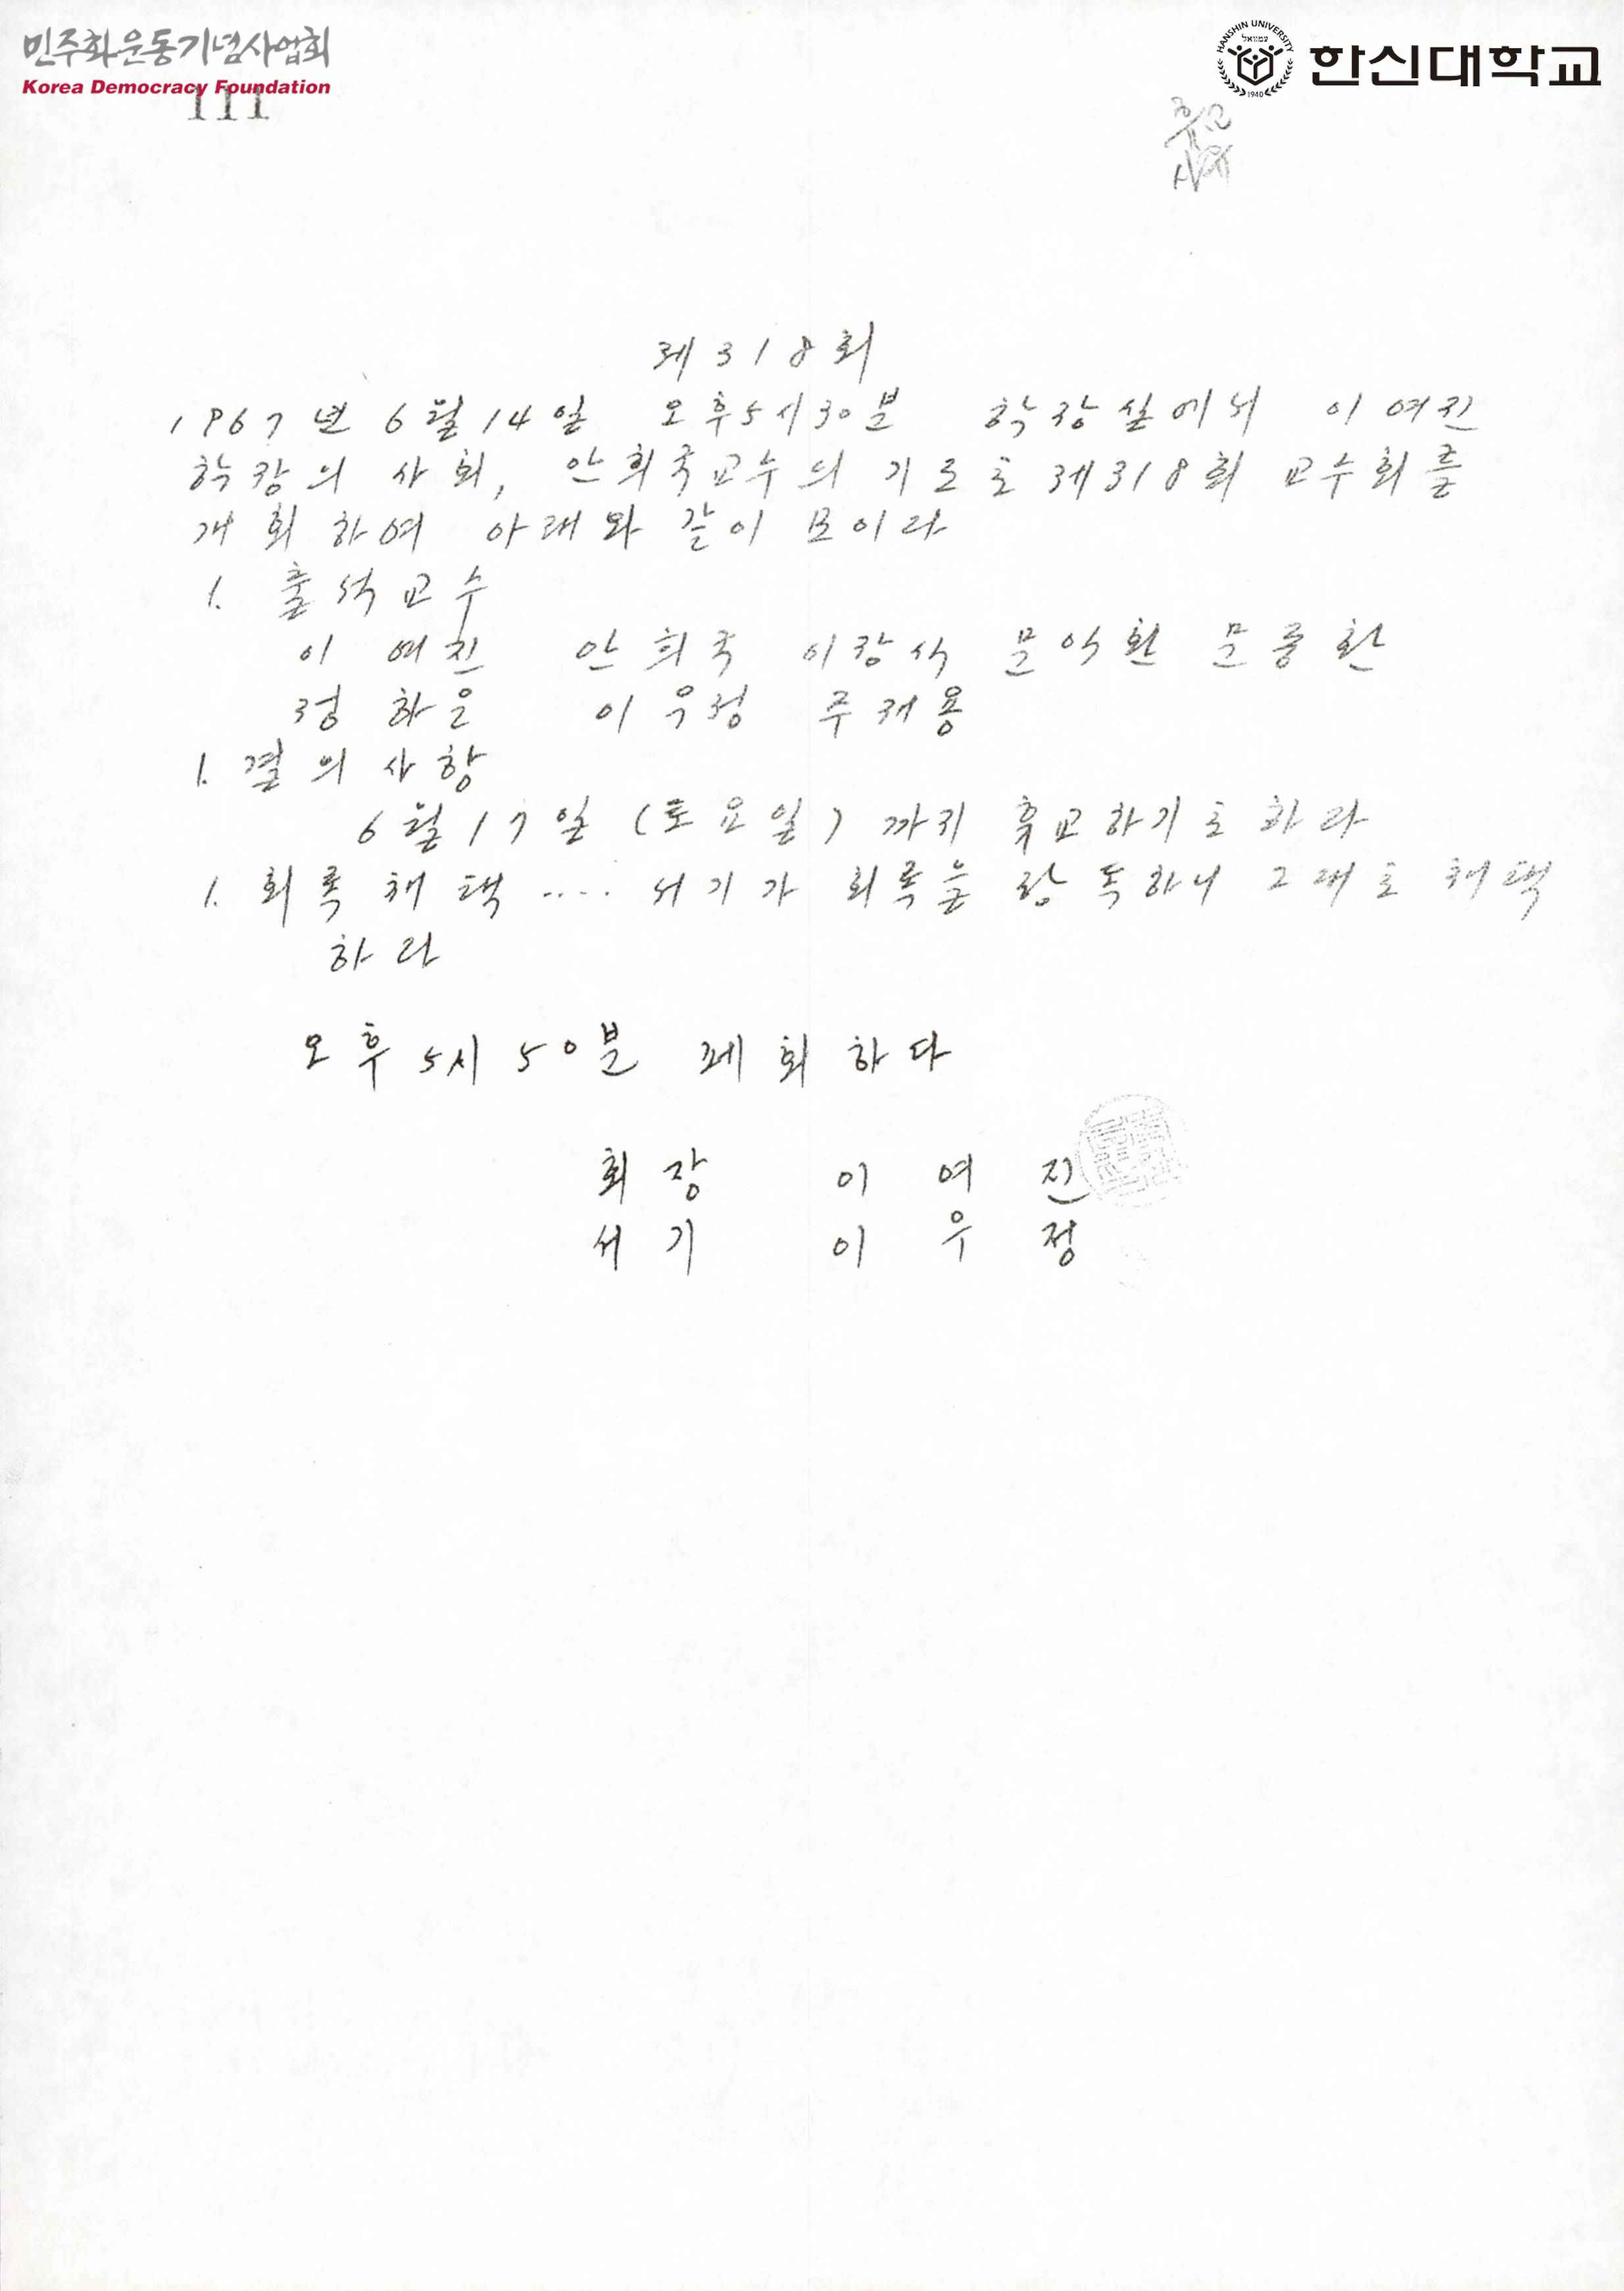 민주화운동기념사업회
Korea Democracy Foundation
HANSHIN UNIVERSITY
1940
한신대학교
111
휴교
제318회
1967년 6월14일 오후5시30분 학장실에서 이여진
학장의 사회, 안희국교수의 기도로 제318회 교수회를
개회하여 아래와 같이 모이다
1. 출석교수
이여진 안희국 이장식 문익환 문동환
정하은 이우정 주재용
1. 결의사항
6월17일 (토요일) 까지 휴교하기로 하다
1. 회록채택 .... 서기가 회록을 랑독하니 그대로 채택
하다
오후5시50분 폐회하다
회장 이여진
서기 이우정